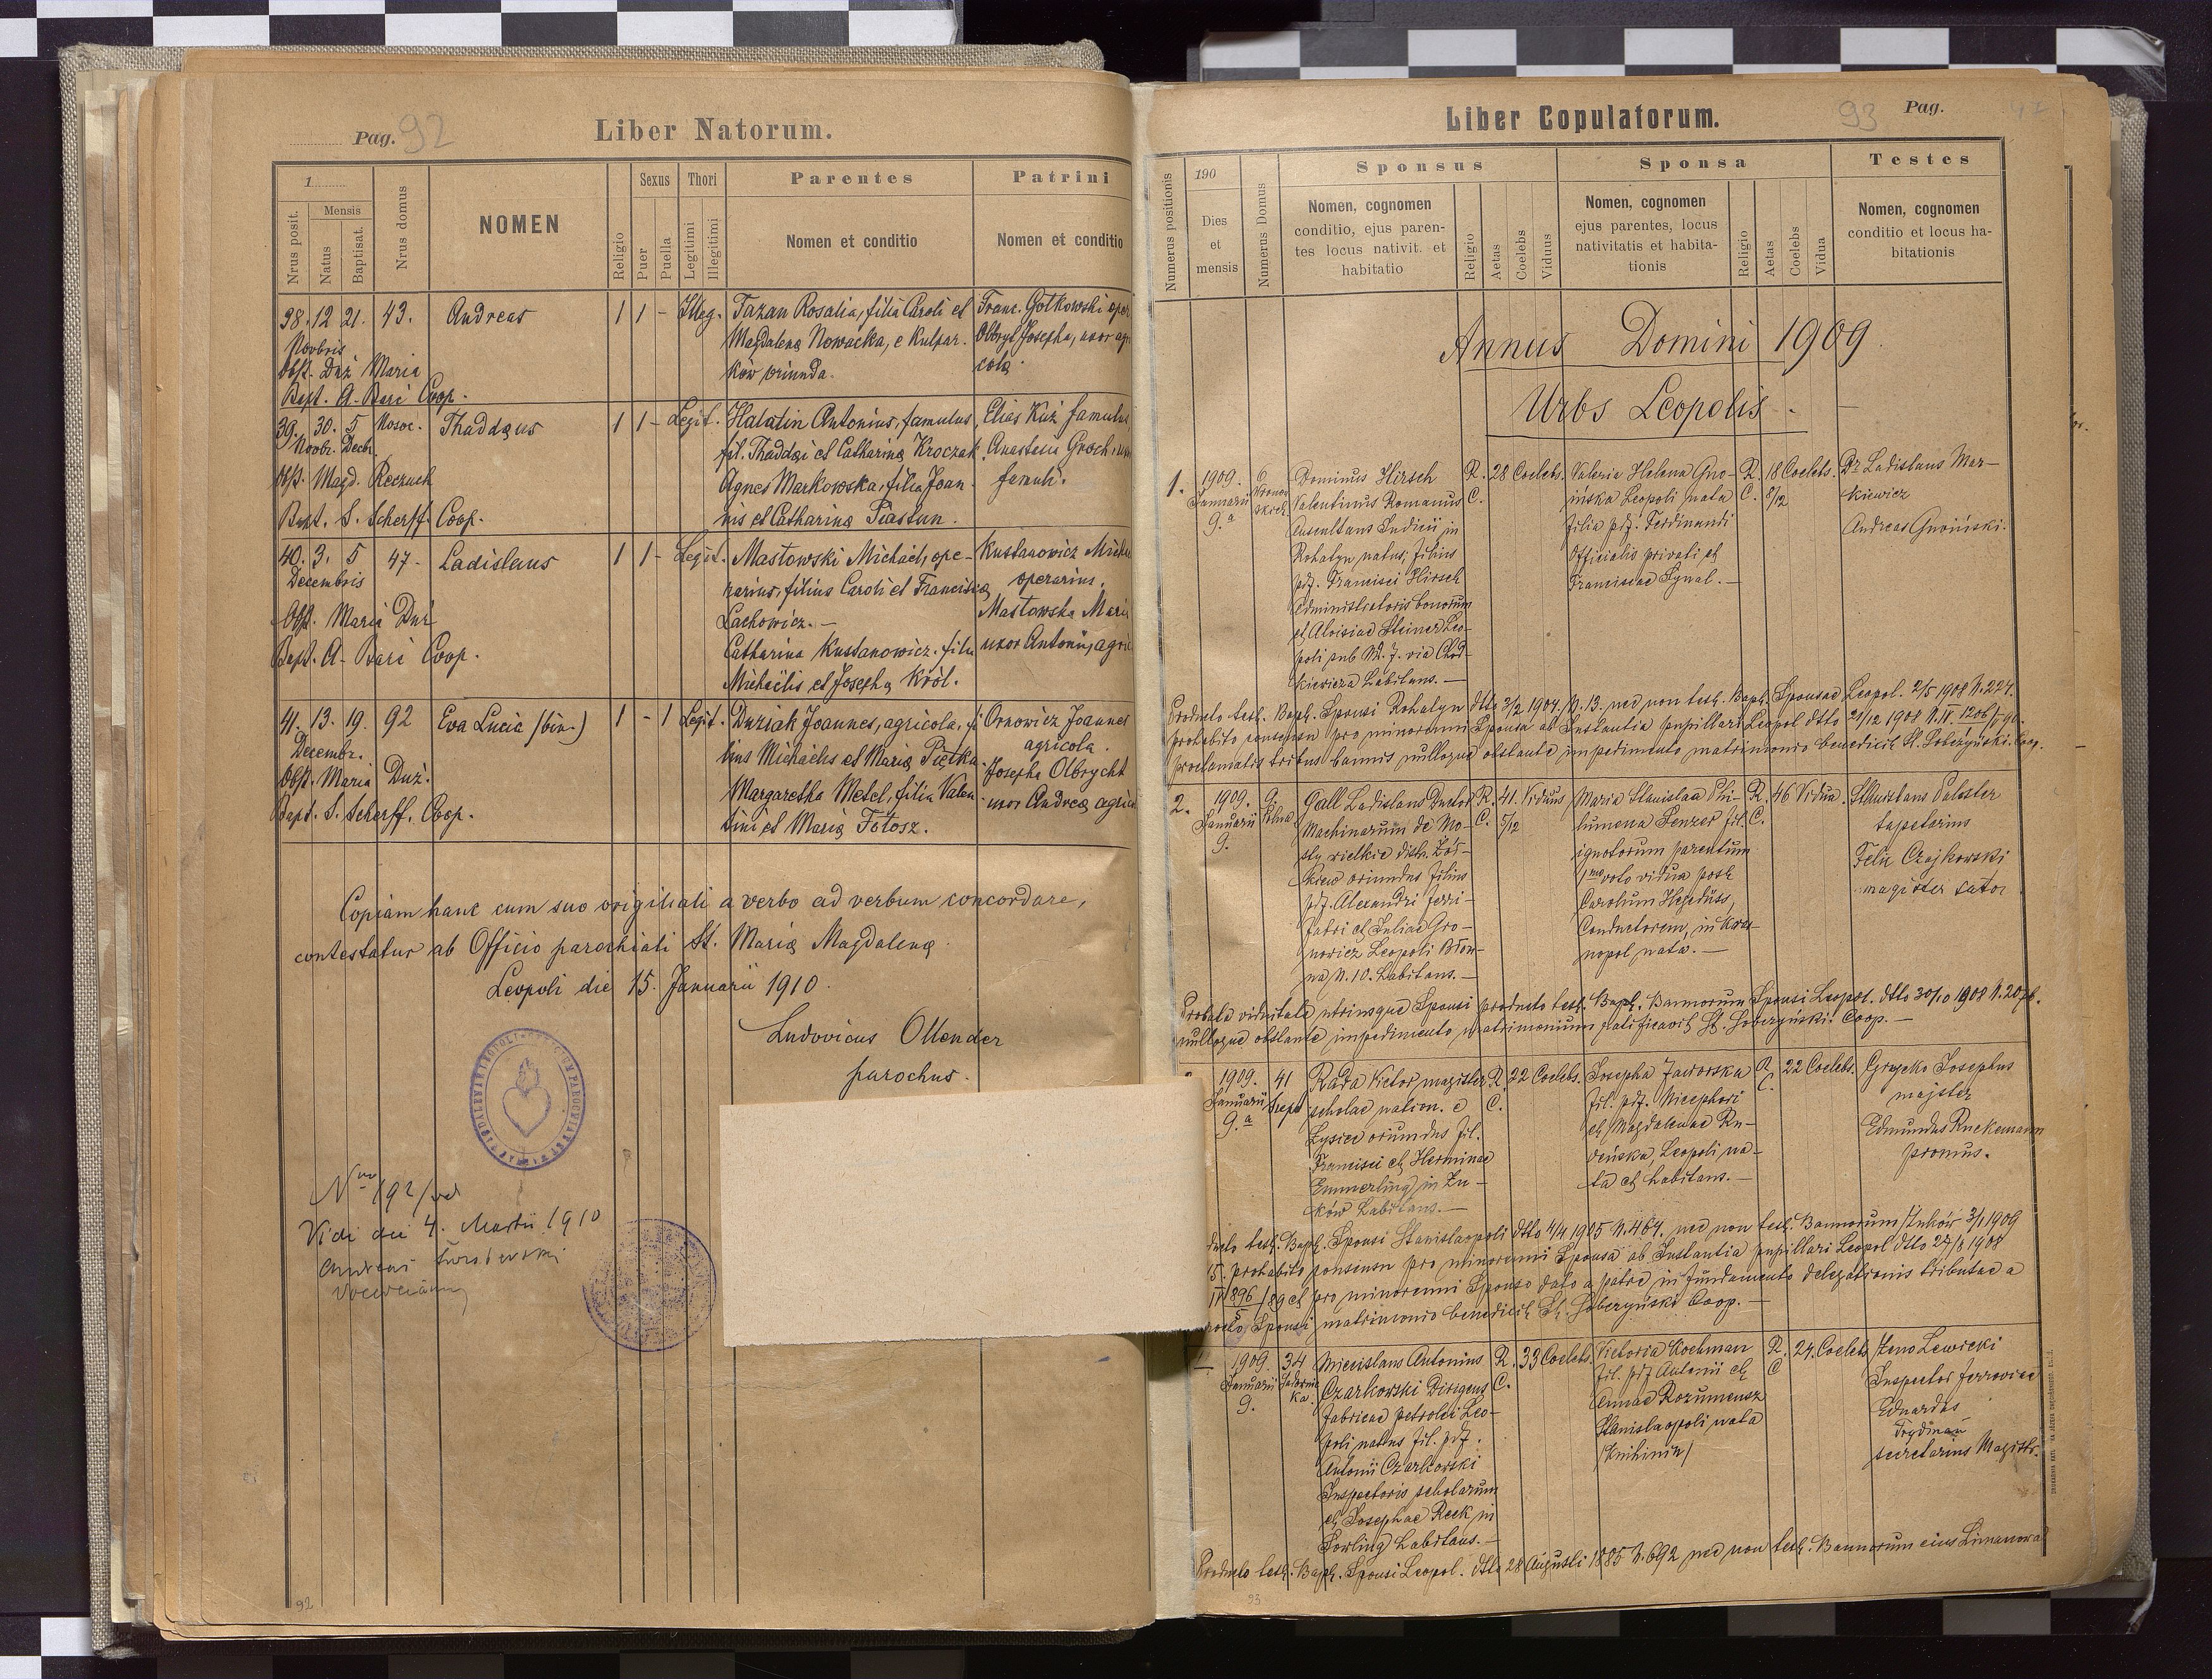 Pag. 92
Liber Natorum.
1
Nrus posit.
Mensis
Natus
Baptisat.
Nrus domus
NOMEN
Religio
Sexus
Puer
Puella
Thori
Legitimi
Illegitimi
Parentes
Nomen et conditio
Patrini
Nomen et conditio
38. 12 21. 43. Andreas 1 1 - Illeg. Tazan Rosalia, filia Caroli et
Magdalenę Nowacka, e Kulpar-
ków oriunda.
Franc. Gotkowski oper
Olbryt Josepha, uxor agri
colę
Novbris
Obst. Duż Maria
Bapt. A. Bari Coop.
39. 30. 5 Mosoc. Thaddęus 1 1 - Legit. Halatin Antonius, famulus,
fil. Thaddęi et Catharinę Kroczak
Agnes Markowska, filia Joan-
nis et Catharinę Piastun.
Elias Kuź famulus
Anastasia Groch, uxor
famuli.
Novbr. Decbr.
Obst. Magd. Reczuch
Bapt. S. Scherff. Coop.
40. 3. 5 47- Ladislaus 1 1 - Legit. Mastowski Michaël, ope-
rarius, filius Caroli et Franciscę
Lachowicz. -
Catharina Kustanowicz. filia
Michaëlis et Josephę Król.
Kustanowicz Micha
operarius.
Mastowska Maria
uxor Antonii, agric
Decembris
Obst. Maria Duż
Bapt. A. Bari Coop.
41. 13. 19. 92 Eva Lucia (bin.) 1 - 1 Legit. Duziak Joannes, agricola, fi
lius Michaelis et Marię Piętka.
Margaretha Metel, filia Valen
tini et Marię Fotosz.
Ornowicz Joannes
agricola.
Josepha Olbrycht
uxor Andreę agric
Decembr.
Obst. Maria Duż.
Bapt. S. Scherff. Coop.
Copiam hanc cum suo originali a verbo ad verbum concordare,
contestatur ab Officio parochiali St. Marię Magdalenę.
Leopoli die 15. Januarii 1910.
Ludovicus Ollender
parochus.
Vidi die 4. Martii 1910
92
Liber Copulatorum.
93 Pag. 47
Numerus positionis
190
Dies
et
mensis
Numerus Domus
Sponsus
Nomen, cognomen
conditio, ejus paren-
tes locus nativit. et
habitatio
Religio
Aetas
Coelebs
Viduus
Sponsa
Nomen, cognomen
ejus parentes, locus
nativitatis et habita-
tionis
Religio
Aetas
Coelebs
Vidua
Testes
Nomen, cognomen
conditio et locus ha-
bitationis
Annus Domini 1909
Urbs Leopolis. -
1. 1909.
Januarii
9.a
6
Dominus Hirsch
Valentinus Romanus
Auscultans Iudicii in
Rohatyn natus, filius
pdf. Francisci Hirsch
Administratoris bonorum
et Aloisiae Steiner Leo-
poli sub N. 7. via Chod-
kiewicza habitans. -
R.
C.
28 Coelebs.
Valeria Helena Gno-
ińska Leopoli nata
filia pdf. Ferdinandi
Officialis privati et
Franciscae Rynal. -
R.
C.
18 Coelebs.
8/12
Dr Ladislaus Mar-
kiewicz
Andreas Gnoiński.
Producto test. Bapt. Sponsi Rohatyn dtto 3/2 1904. N. 13. nec non test. Bapt. Sponsae Leopol. 2/5 1908 N. 224.
probabito consensu pro minorenni Sponsa ab Instantia pupillari Leopol dtto 21/12 1908 N. IV. 1206/
proclamatis tribus bannis nulloque obstante impedimento matrimonio benedicit St. Sobczyński. Coop.
2. 1909.
Januarii
9.
9.
Gall Ladislaus Ductor
Machinarum de Mo-
sty wielkie distr. Żół-
kiew oriundus filius
pdf. Alexandri ferri-
fabri et Juliae Gro-
nowicz Leopoli Bton-
na N. 10. habitans. -
R.
C.
41. Viduus
5/12
Maria Stanislaa Phi-
lumena Senzer fil.
ignotorum parentum
1mo voto vidua post
Carolum Hegedüss,
Conductorem, in Kras-
nopol nata. -
R.
C.
46 Vidua.
tapetarius
Felix Czajkowski
magister sator
Probata viduitate utriusque Sponsi producto test. Bapt. Bannorum Sponsi Leopol. dtto 30/10 1908 N.
nulloque obstante impedimento matrimonium ratificavit St. Sobczyński Coop. -
1909.
Januarii
9.a
41
Rada Victor magister
scholae nation. e
Łysiec oriundus fil.
Francisci et Herminae
Emmerling in Żu-
ków habitans. -
R.
C.
22 Coelebs.
Josepha Jaworska
fil. pdf. Nicephori
et Magdalenae Ru-
deńska, Leopoli na-
ta et habitans. -
R.
C.
22 Coelebs.
Grzycko Josephus
majster
Edmundus Ruckemann
promus.
ducto test. Bapt. Sponsi Stanislaopoli dtto 4/4 1905 N. 464. nec non test. Bannorum Żuków 3/1 1909
15. probabito consensu pro minorenni Sponsa ab Instantia pupillari Leopol dtto 27/8 1908
IV 896/89 et pro minorenni Sponso dato a patre in fundamento delegationis tributae a
Sponsi matrimonio benedicit St. Sobczyński Coop. -
1909.
Januarii
9.
34
Miecislaus Antonius
Czarkowski Dirigens
fabricae petrolei Leo-
poli natus fil. pdf.
Antonii Czarkowski
Inspectoris scholarum
et Josephae Reck in
Sowling habitans. -
R.
C.
33 Coelebs.
Victoria Kochman
fil. pdf Antonii et
Annae Rozumeusz
Stanislaopoli nata
/Knihinin/
R.
C
24. Coelebs
Zeno Lewicki
Inspector ferroviae
Eduardus
Frydman
secretarius Magistr.
Producto test. Bapt. Sponsi Leopol. dtto 28 Augusti 1885 N. 692 nec non test. Bannorum eius Limanowa
93